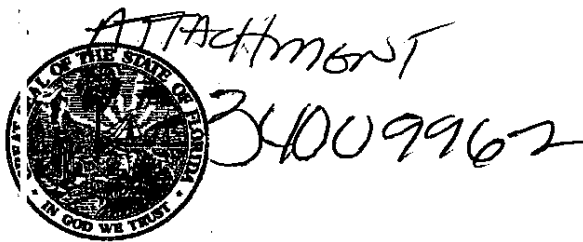 ATTACHMENT
34009962
SEAL OF THE STATE OF FLORIDA
IN GOD WE TRUST